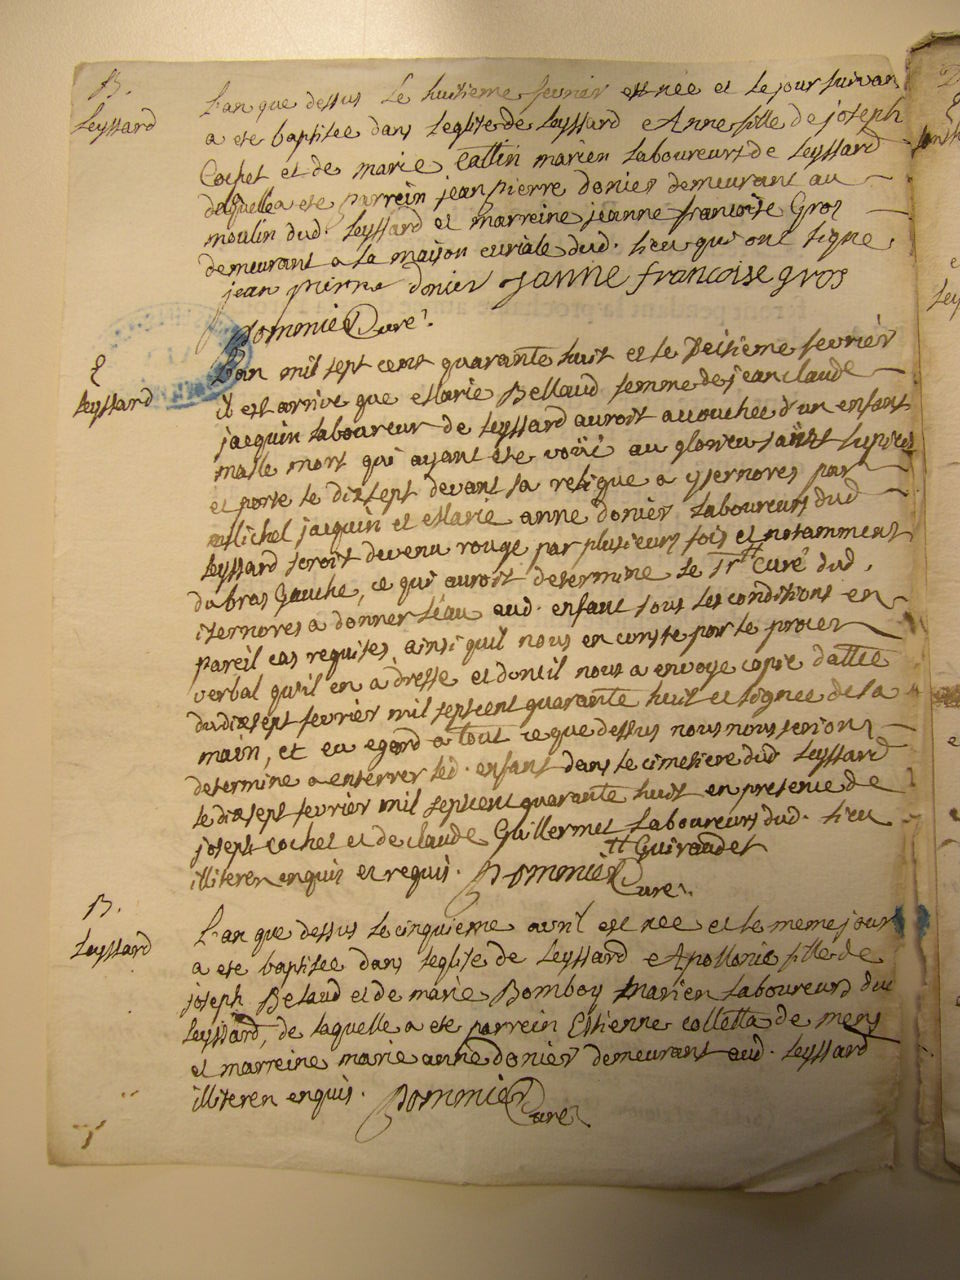 B.
Leyssard
L'an que dessus le huitieme fevrier est née et le jour suivan
a ete baptisée dans leglise de Leyssard Anne fille de joseph
Cochet et de marie Cattin mariés Laboureurs de Leyssard
delaquelle a ete parrein jean pierre donier demeurant au
moulin dud. Leyssard et marreine jeanne francoise Gros
demeurant a la maison curiale dud. lieu qui ont signe
jean pierre donier janne francoise gros
Pommier Curé.
E
Leyssard
L'an mil sept cent quarante huit et le seisieme fevrier
il est arrive que Marie Bellaud femme de jean claude
jacquin laboureur de Leyssard auroit accouchée d'un enfant
masle mort qui ayant ete voüé au glorieu saint
et porte le dixsept devant sa relique a ysernores par
Michel jacquin et Marie anne donier Laboureurs dud
Leyssard seroit devenu rouge par plusieurs fois et notamment
du bras gauche, ce qui auroit determine le Sr curé dud.
isernores a donner l'eau aud. enfant sous les conditions en
pareil cas requises ainsi quil nous en conste par le procer
verbal qu'il en a dressé et dont il nous a envoye copie datté
du dixsept fevrier mil septcent quarante huit et signee de sa
main, et eu egard a tout ce que dessus nous nous serions
determine a enterrer led. enfant dans le cimetiere dud Leyssard
le dixsept fevrier mil septcent quarante huit en presence de
joseph cochet et de claude Guillermet Laboureurs dud. lieu
illiteren enquis et requis. Pommier Curé.
tt Guiraudet
B.
Leyssard
L'an que dessus le cinquieme avril est née et le meme jour
a ete baptisée dans leglise de Leyssard Apollonie fille de
joseph Belaud et de marie Bomboy mariés Laboureurs dud
Leyssard, de laquelle a ete parrein Estienne colletta de mens
et marreine marie anne donier demeurant aud. Leyssard
illiteren enquis. Pommier Curé